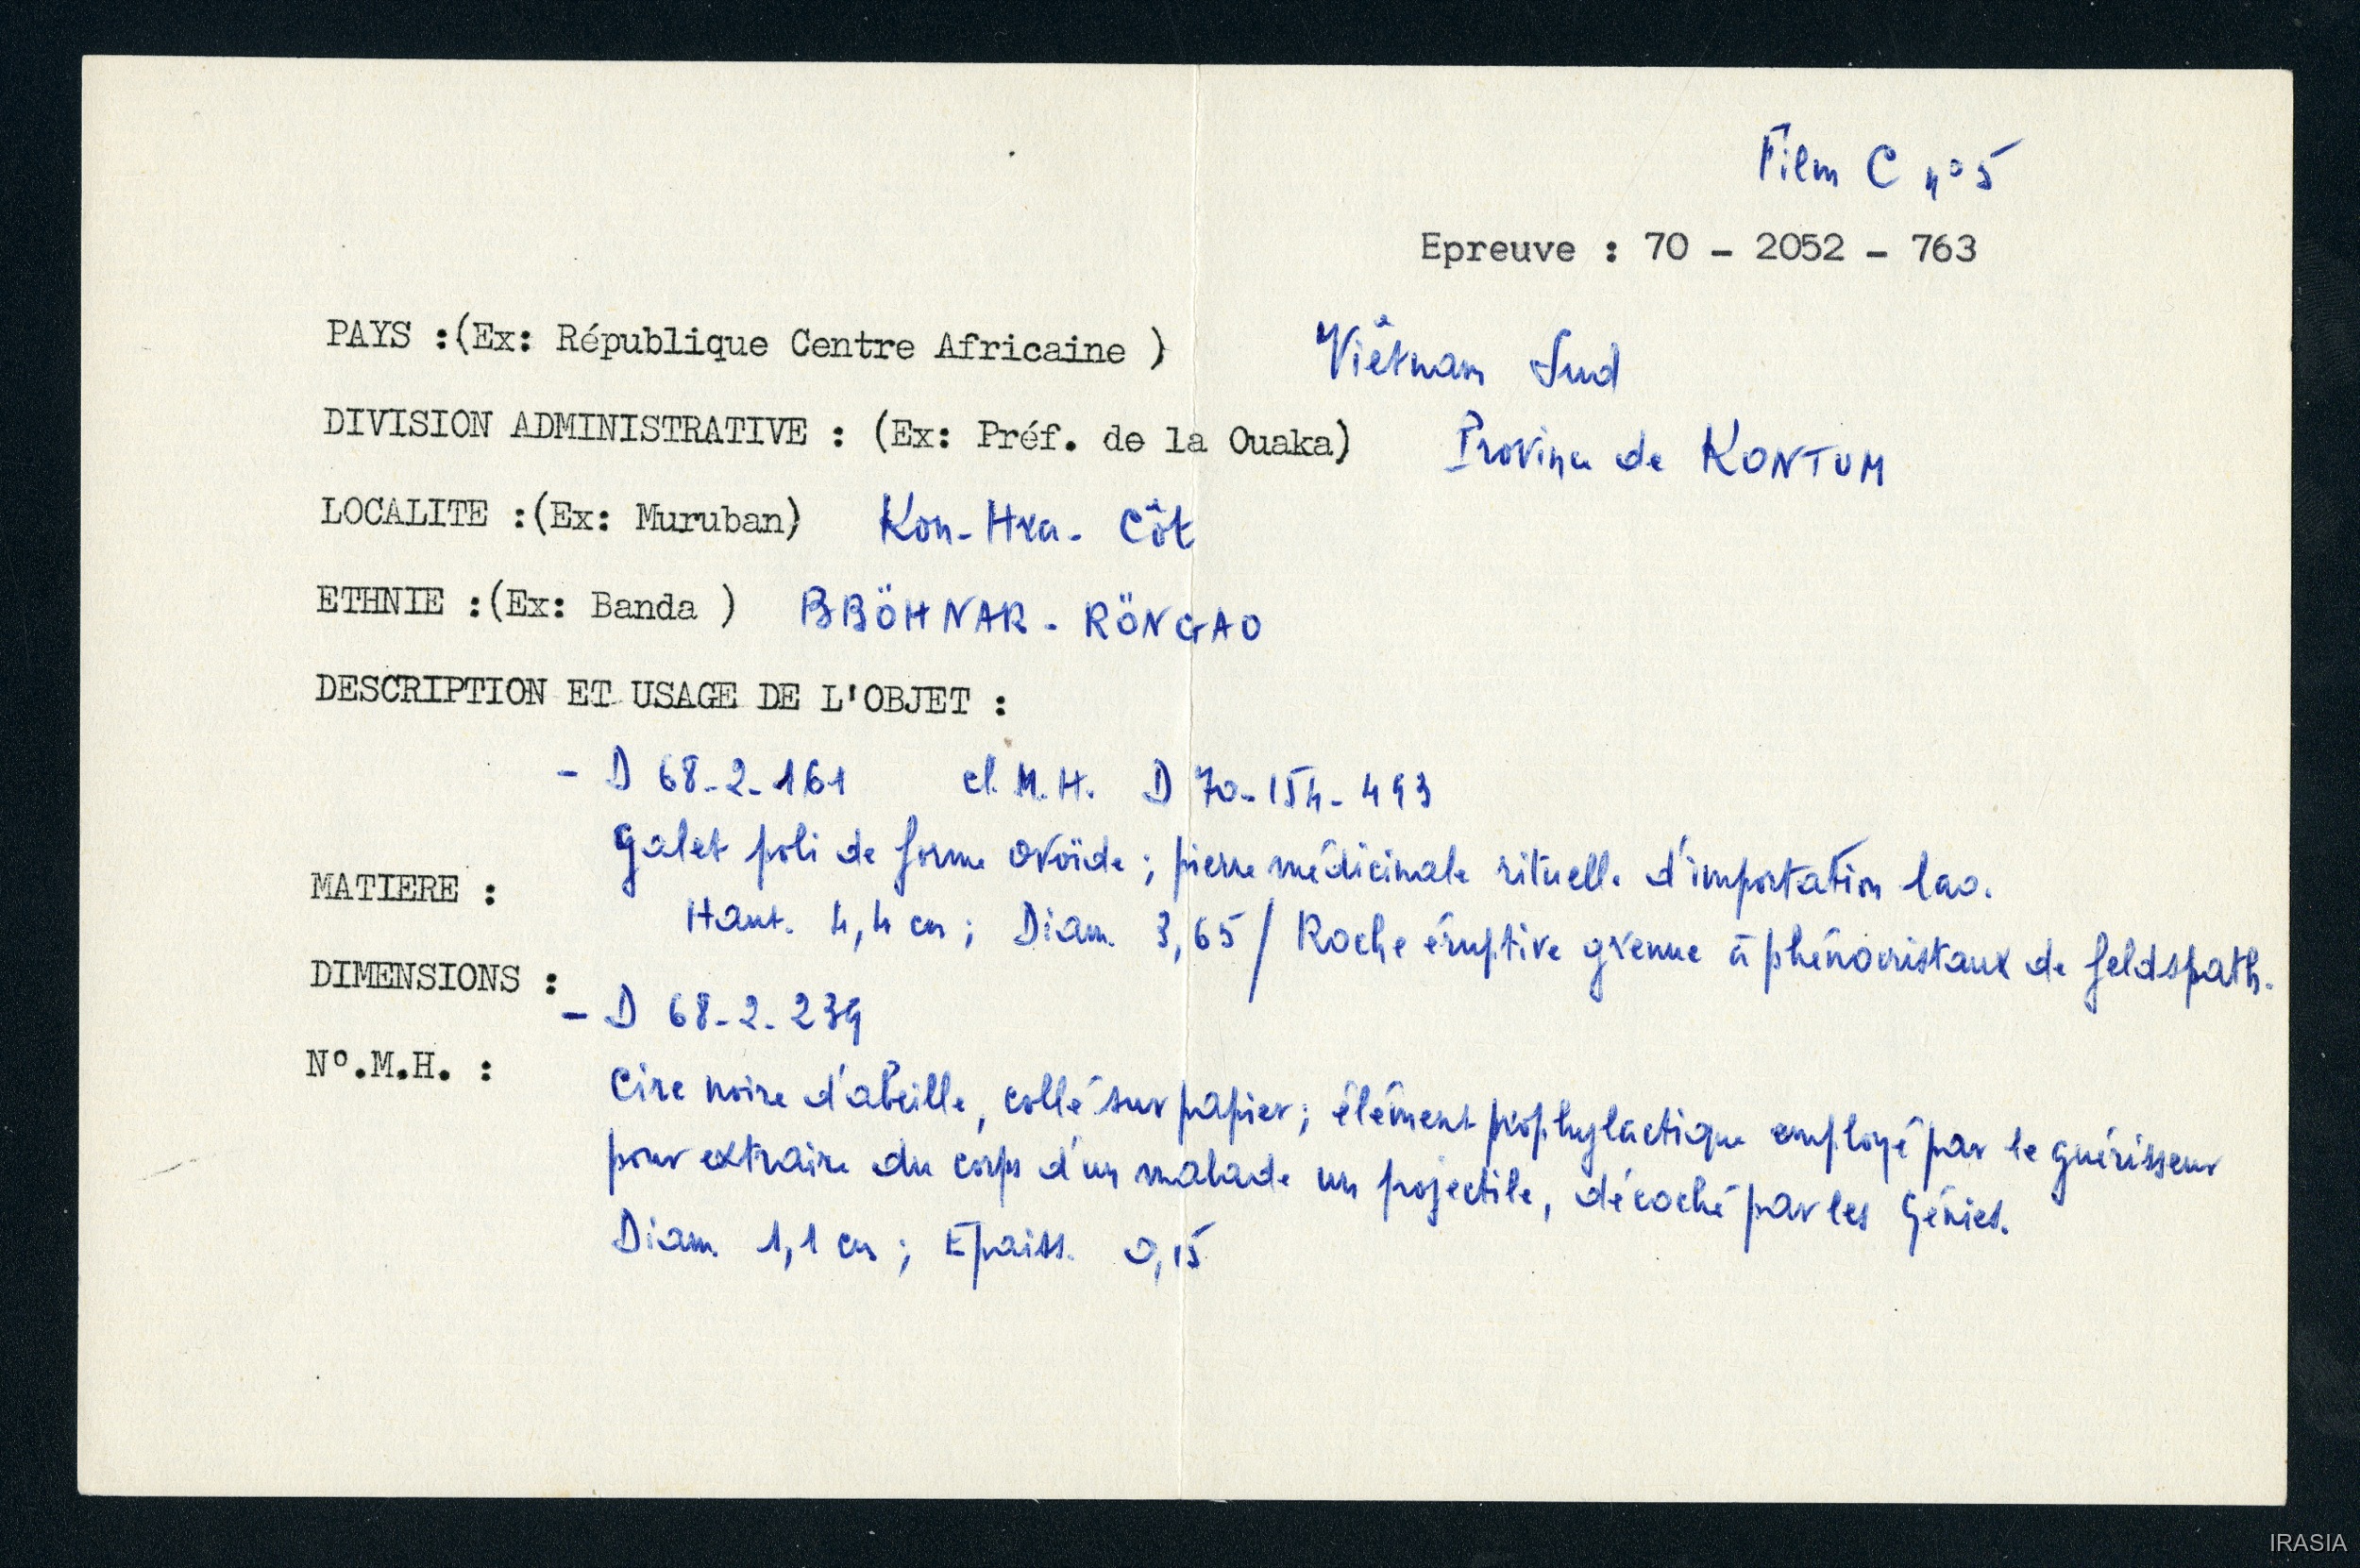 Film C n° 5
Epreuve : 70 - 2052 - 763
PAYS :(Ex: République Centre Africaine ) Viêtnam Sud
DIVISION ADMINISTRATIVE : (Ex: Préf. de la Ouaka) Province de KONTUM
LOCALITE :(Ex: Muruban) Kon-Hra-Côt
ETHNIE :(Ex: Banda ) BBÖHNAR - RÖNGAO
DESCRIPTION ET USAGE DE L'OBJET :
- D 68-2-161 cl. M.H. D 70-154-493
Galet poli de forme ovoïde ; pierre médicinale rituelle d'importation lao.
MATIERE :
Haut. 4,4 cm ; Diam. 3,65 / Roche éruptive grenue à phénocristaux de feldspath.
DIMENSIONS :
- D 68-2-239
N°.M.H. :
Cire noire d'abeille, collé sur papier ; élément prophylactique employé par le guérisseur
pour extraire du corps d'un malade un projectile, décoché par les Génies.
Diam. 1,1 cm ; Epaiss. 0,15
IRASIA